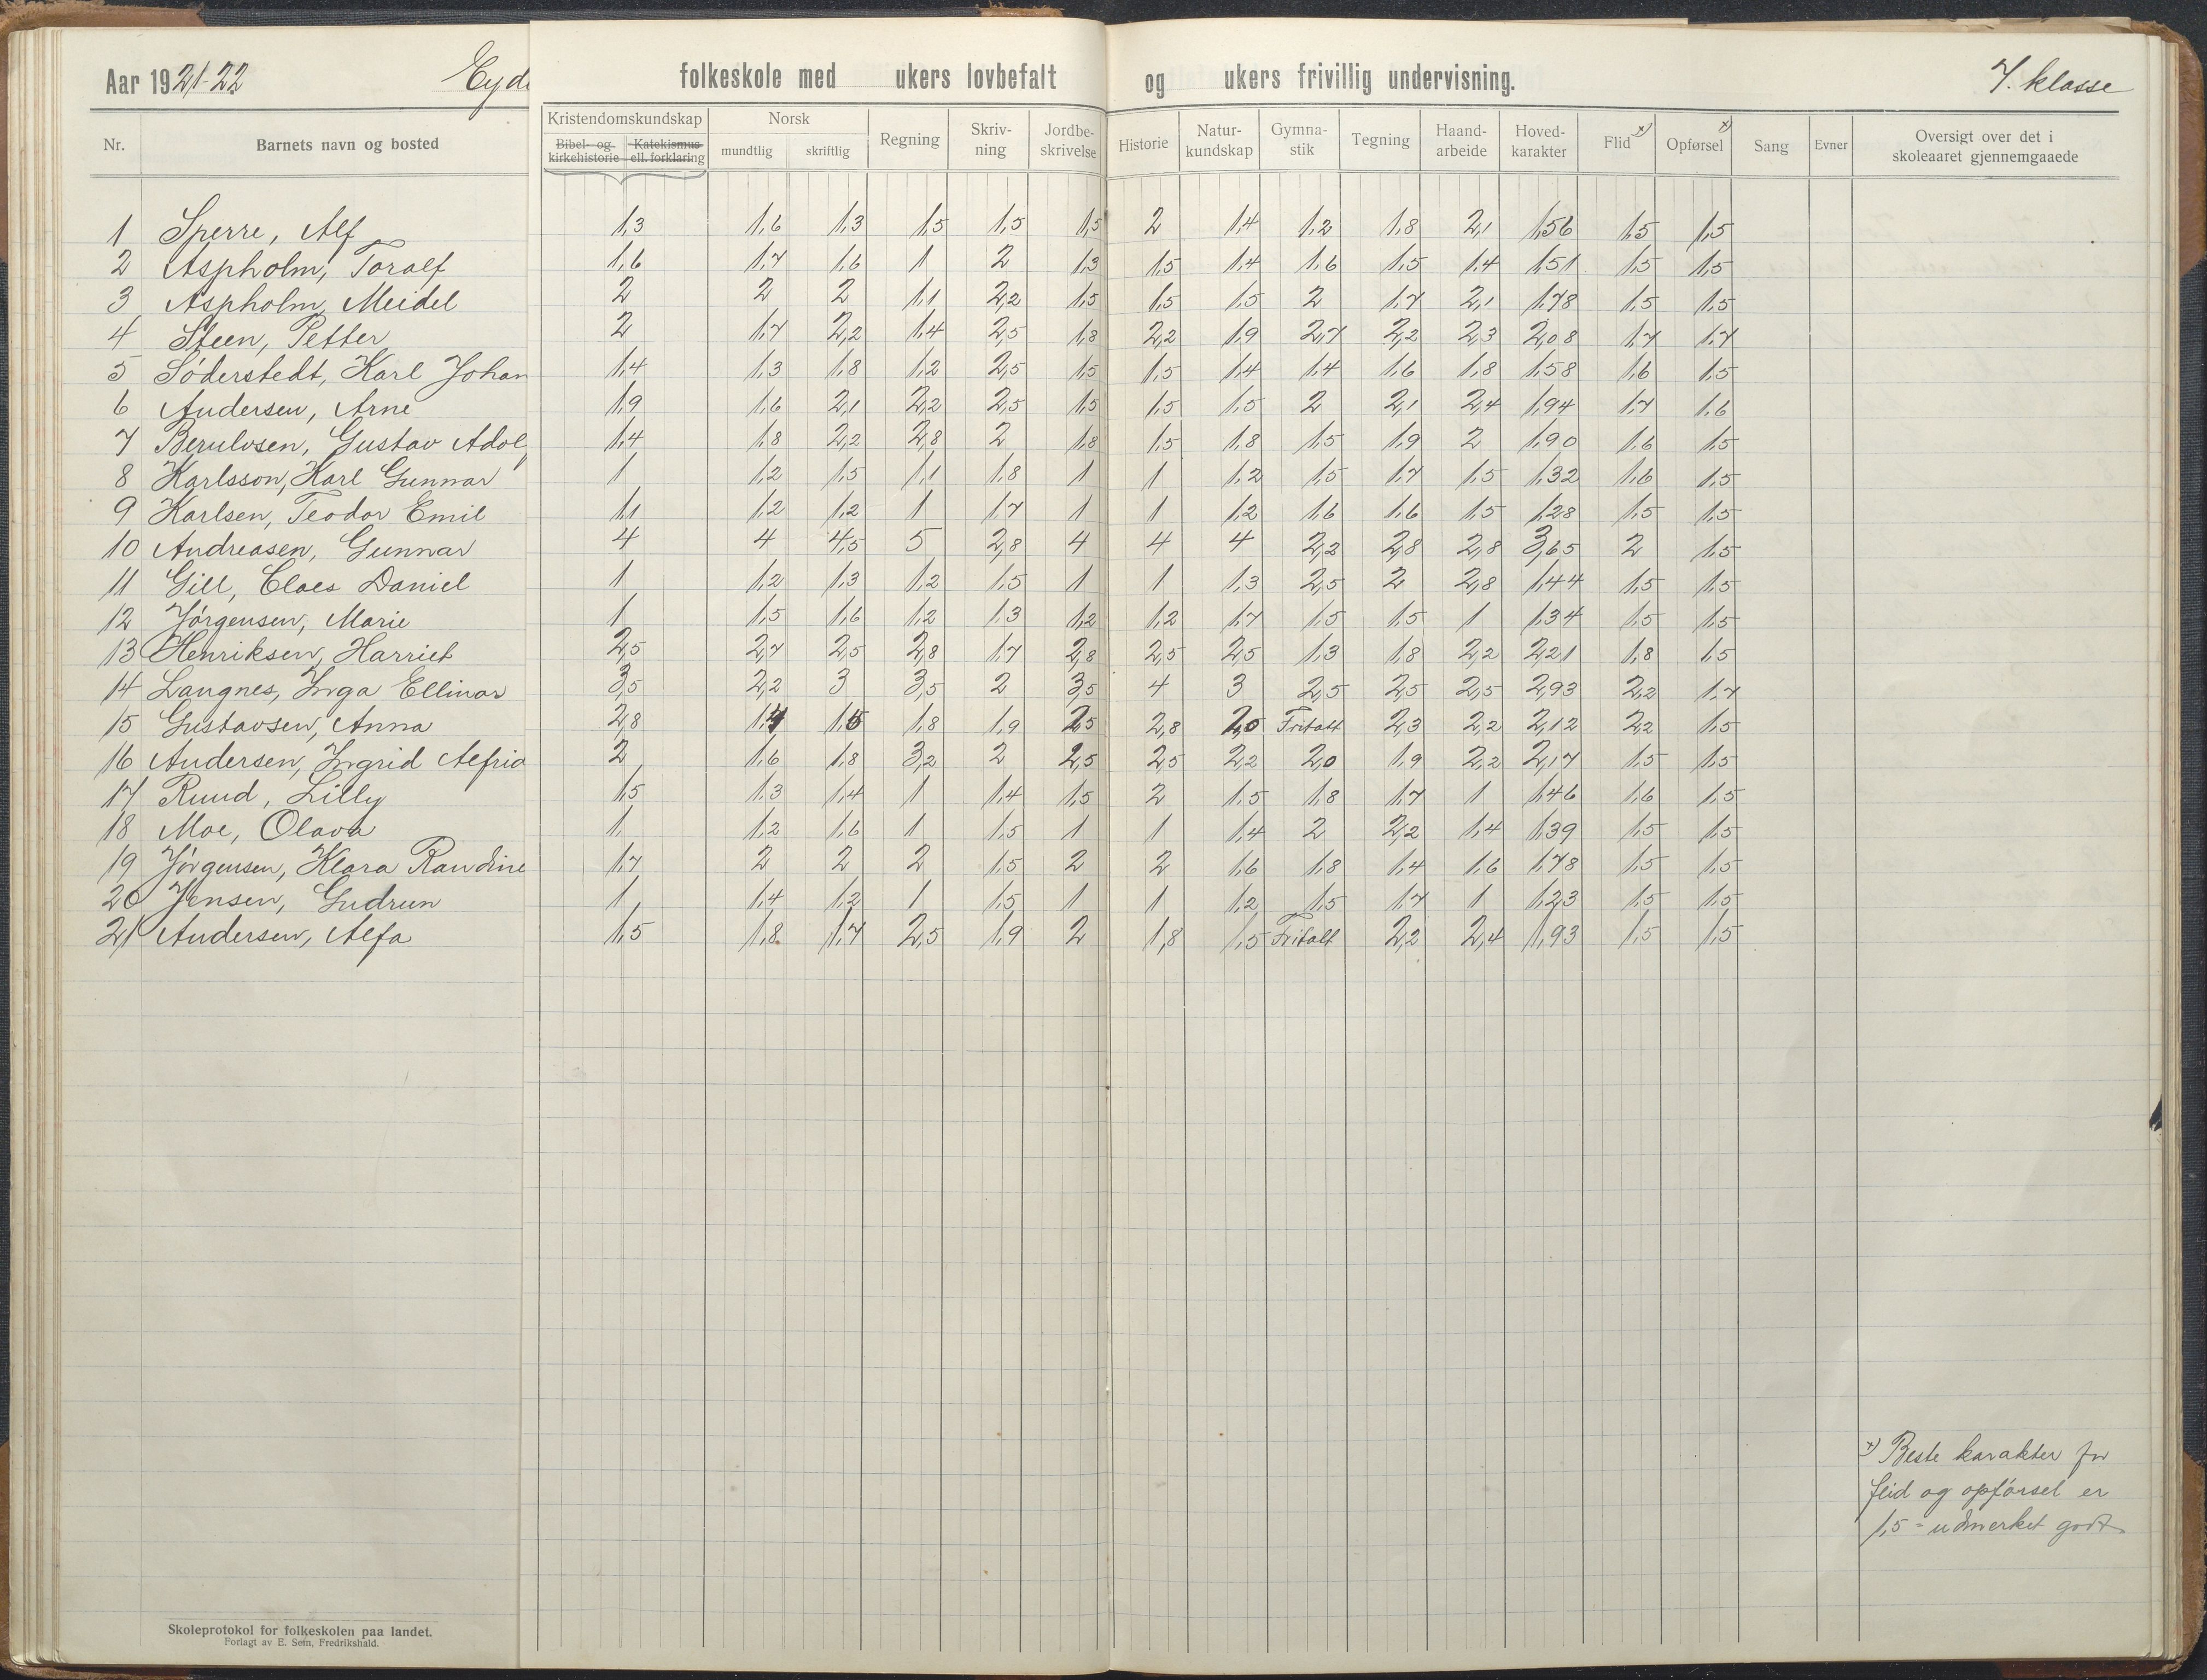 Aar 1921-22 Eyde folkeskole med ukers lovbefalt og ukers frivillig undervisning. 7. klasse
Nr. Barnets navn og bosted Kristendomskundskap Bibel- og kirkehistorie Katekismus ell. forklaring Norsk mundtlig skriftlig Regning Skriv-ning Jordbe-skrivelse Historie Natur-kundskap Gymna-stik Tegning Haand-arbeide Hoved-karakter Flid x) Opførsel x) Sang Evner Oversigt over det i skoleaaret gjennemgaaede
1 Sperre, Alf 1,3 1,6 1,3 1,5 1,5 1,5 2 1,4 1,2 1,8 2,1 1,56 1,5 1,5
2 Aspholm, Toralf 1,6 1,7 1,6 1 2 1,3 1,5 1,4 1,6 1,5 1,4 1,51 1,5 1,5
3 Aspholm, Meidel 2 2 2 1,1 2,2 1,5 1,5 1,5 2 1,7 2,1 1,78 1,5 1,5
4 Steen, Petter 2 1,7 2,2 1,4 2,5 1,8 2,2 1,9 2,7 2,2 2,3 2,08 1,7 1,7
5 Söderstedt, Karl Johan 1,4 1,3 1,8 1,2 2,5 1,5 1,5 1,4 1,4 1,6 1,8 1,58 1,6 1,5
6 Andersen, Arne 1,9 1,6 2,1 2,2 2,5 1,5 1,5 1,5 2 2,1 2,4 1,94 1,7 1,6
7 Berulvsen, Gustav Adol 1,4 1,8 2,2 2,8 2 1,8 1,5 1,8 1,5 1,9 2 1,90 1,6 1,5
8 Karlsson, Karl Gunnar 1 1,2 1,5 1,1 1,8 1 1 1,2 1,5 1,7 1,5 1,32 1,6 1,5
9 Karlsen, Teodor Emil 1,1 1,2 1,2 1 1,7 1 1 1,2 1,6 1,6 1,5 1,28 1,5 1,5
10 Andreasen, Gunnar 4 4 4,5 5 2,8 4 4 4 2,2 2,8 2,8 3,65 2 1,5
11 Gill, Claes Daniel 1 1,2 1,3 1,2 1,5 1 1 1,3 2,5 2 2,8 1,44 1,5 1,5
12 Jörgensen, Marie 1 1,5 1,6 1,2 1,3 1,2 1,2 1,7 1,5 1,5 1 1,34 1,5 1,5
13 Henriksen, Harriet 2,5 2,7 2,5 2,8 1,7 2,8 2,5 2,5 1,3 1,8 2,2 2,21 1,8 1,5
14 Langnes, Inga Ellinor 3,5 2,2 3 3,5 2 3,5 4 3 2,5 2,5 2,5 2,93 2,2 1,7
15 Gustavsen, Anna 2,8 1,4 1,5 1,8 1,9 2,5 2,8 2,0 Fritatt 2,3 2,2 2,12 2,2 1,5
16 Andersen, Ingrid Alfrid 2 1,6 1,8 3,2 2 2,5 2,5 2,2 2,0 1,9 2,2 2,17 1,5 1,5
17 Ruud, Lilly 1,5 1,3 1,4 1 1,4 1,5 2 1,5 1,8 1,7 1 1,46 1,6 1,5
18 Moe, Olava 1 1,2 1,6 1 1,5 1 1 1,4 2 2,2 1,4 1,39 1,5 1,5
19 Jörgensen, Klara Randine 1,7 2 2 2 1,5 2 2 1,6 1,8 1,4 1,6 1,78 1,5 1,5
20 Jensen, Gudrun 1 1,4 1,2 1 1,5 1 1 1,2 1,5 1,7 1 1,23 1,5 1,5
21 Andersen, Alfa 1,5 1,8 1,7 2,5 1,9 2 1,8 1,5 Fritatt 2,2 2,4 1,93 1,5 1,5
x) Beste karakter for
flid og opförsel er
1,5 = udmerket godt
Skoleprotokol for folkeskolen paa landet.
Forlagt av E. Sem, Fredrikshald.